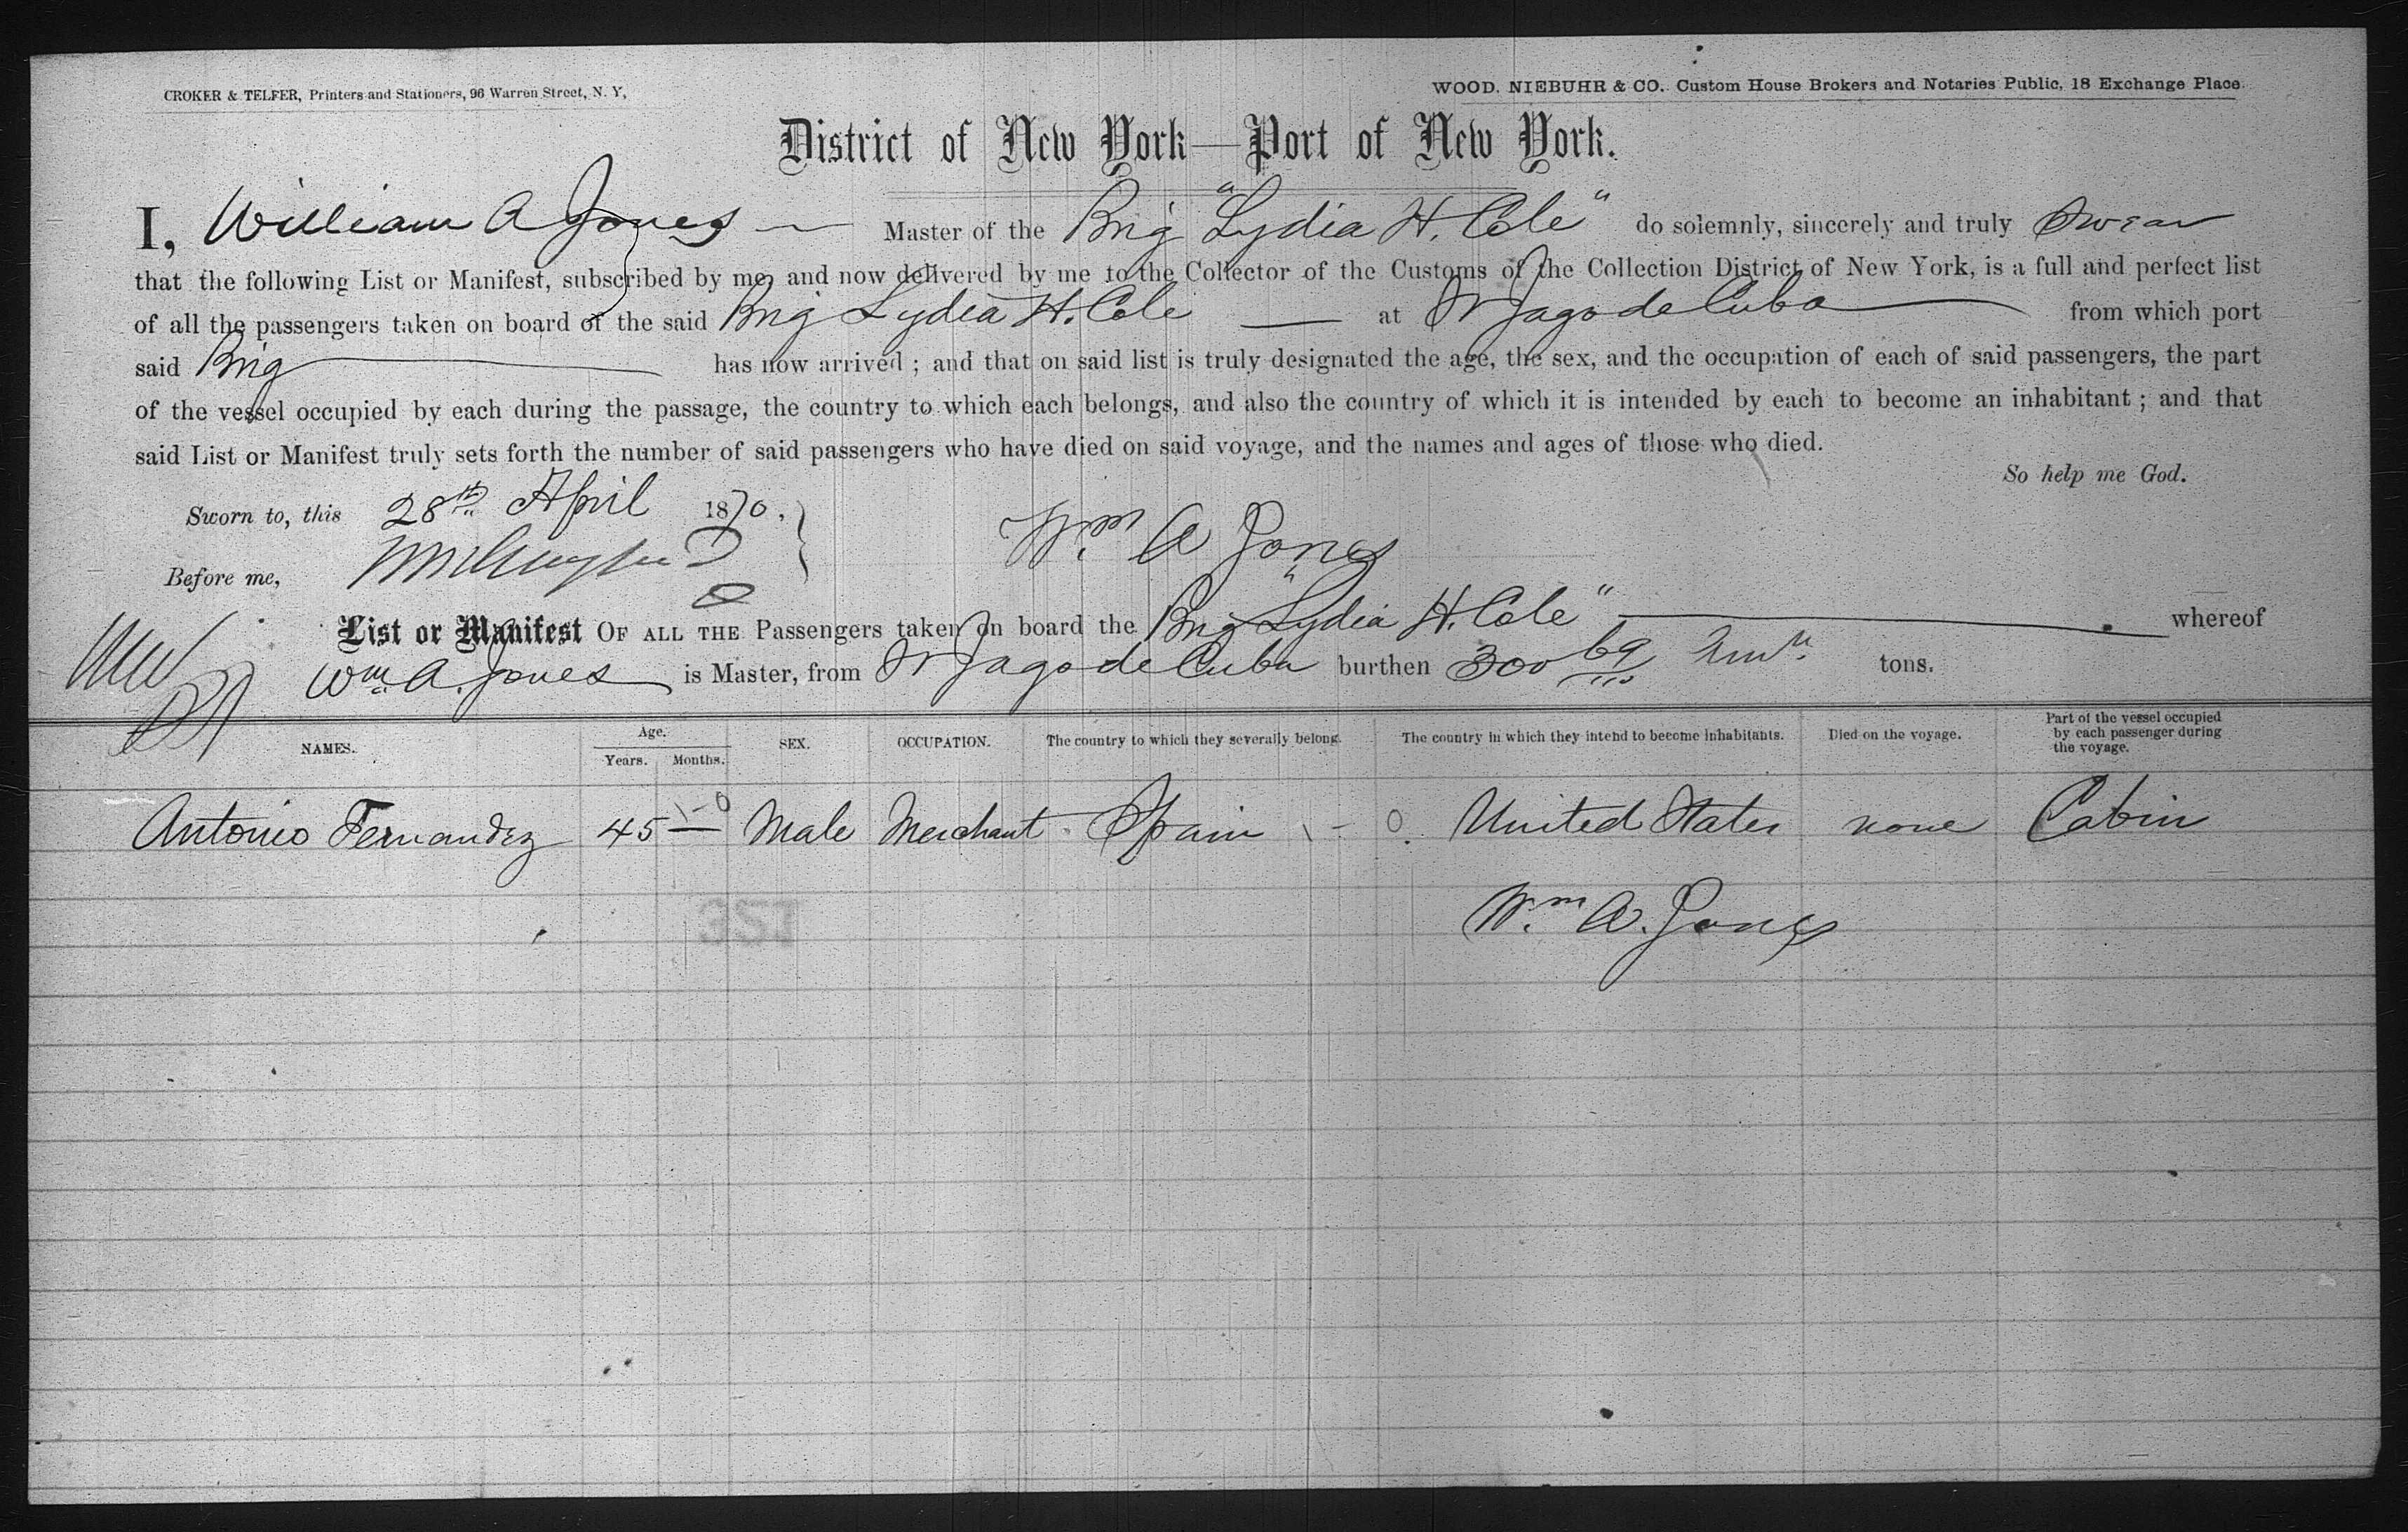 CROKER & TELFER, Printers and Stationers, 96 Warren Street, N. Y,
WOOD, NIEBUHR & CO. Custom House Brokers and Notaries Public, 18 Exchange Place.
District of New York—Port of New York.
I, William A Jones — Master of the Brig "Lydia H. Cole" do solemnly, sincerely and truly Swear
that the following List or Manifest, subscribed by me, and now delivered by me to the Collector of the Customs of the Collection District of New York, is a full and perfect list
of all the passengers taken on board of the said Brig Lydia H. Cole — at St Jago de Cuba from which port
said Brig has now arrived; and that on said list is truly designated the age, the sex, and the occupation of each of said passengers, the part
of the vessel occupied by each during the passage, the country to which each belongs, and also the country of which it is intended by each to become an inhabitant; and that
said List or Manifest truly sets forth the number of said passengers who have died on said voyage, and the names and ages of those who died.
So help me God.
Sworn to, this 28th April 1870.
Wm A Jones
Before me,
List or Manifest OF ALL THE Passengers taken on board the Brig "Lydia H. Cole" whereof
Wm A. Jones is Master, from St Jago de Cuba burthen 300 69 tons.
NAMES. Age. Years. Months. SEX. OCCUPATION. The country to which they severally belong. The country in which they intend to become inhabitants. Died on the voyage. Part of the vessel occupied by each passenger during the voyage.
1-0
Antonio Fernandez 45 — Male Merchant Spain 1 - 0. United States none Cabin
Wm A. Jones